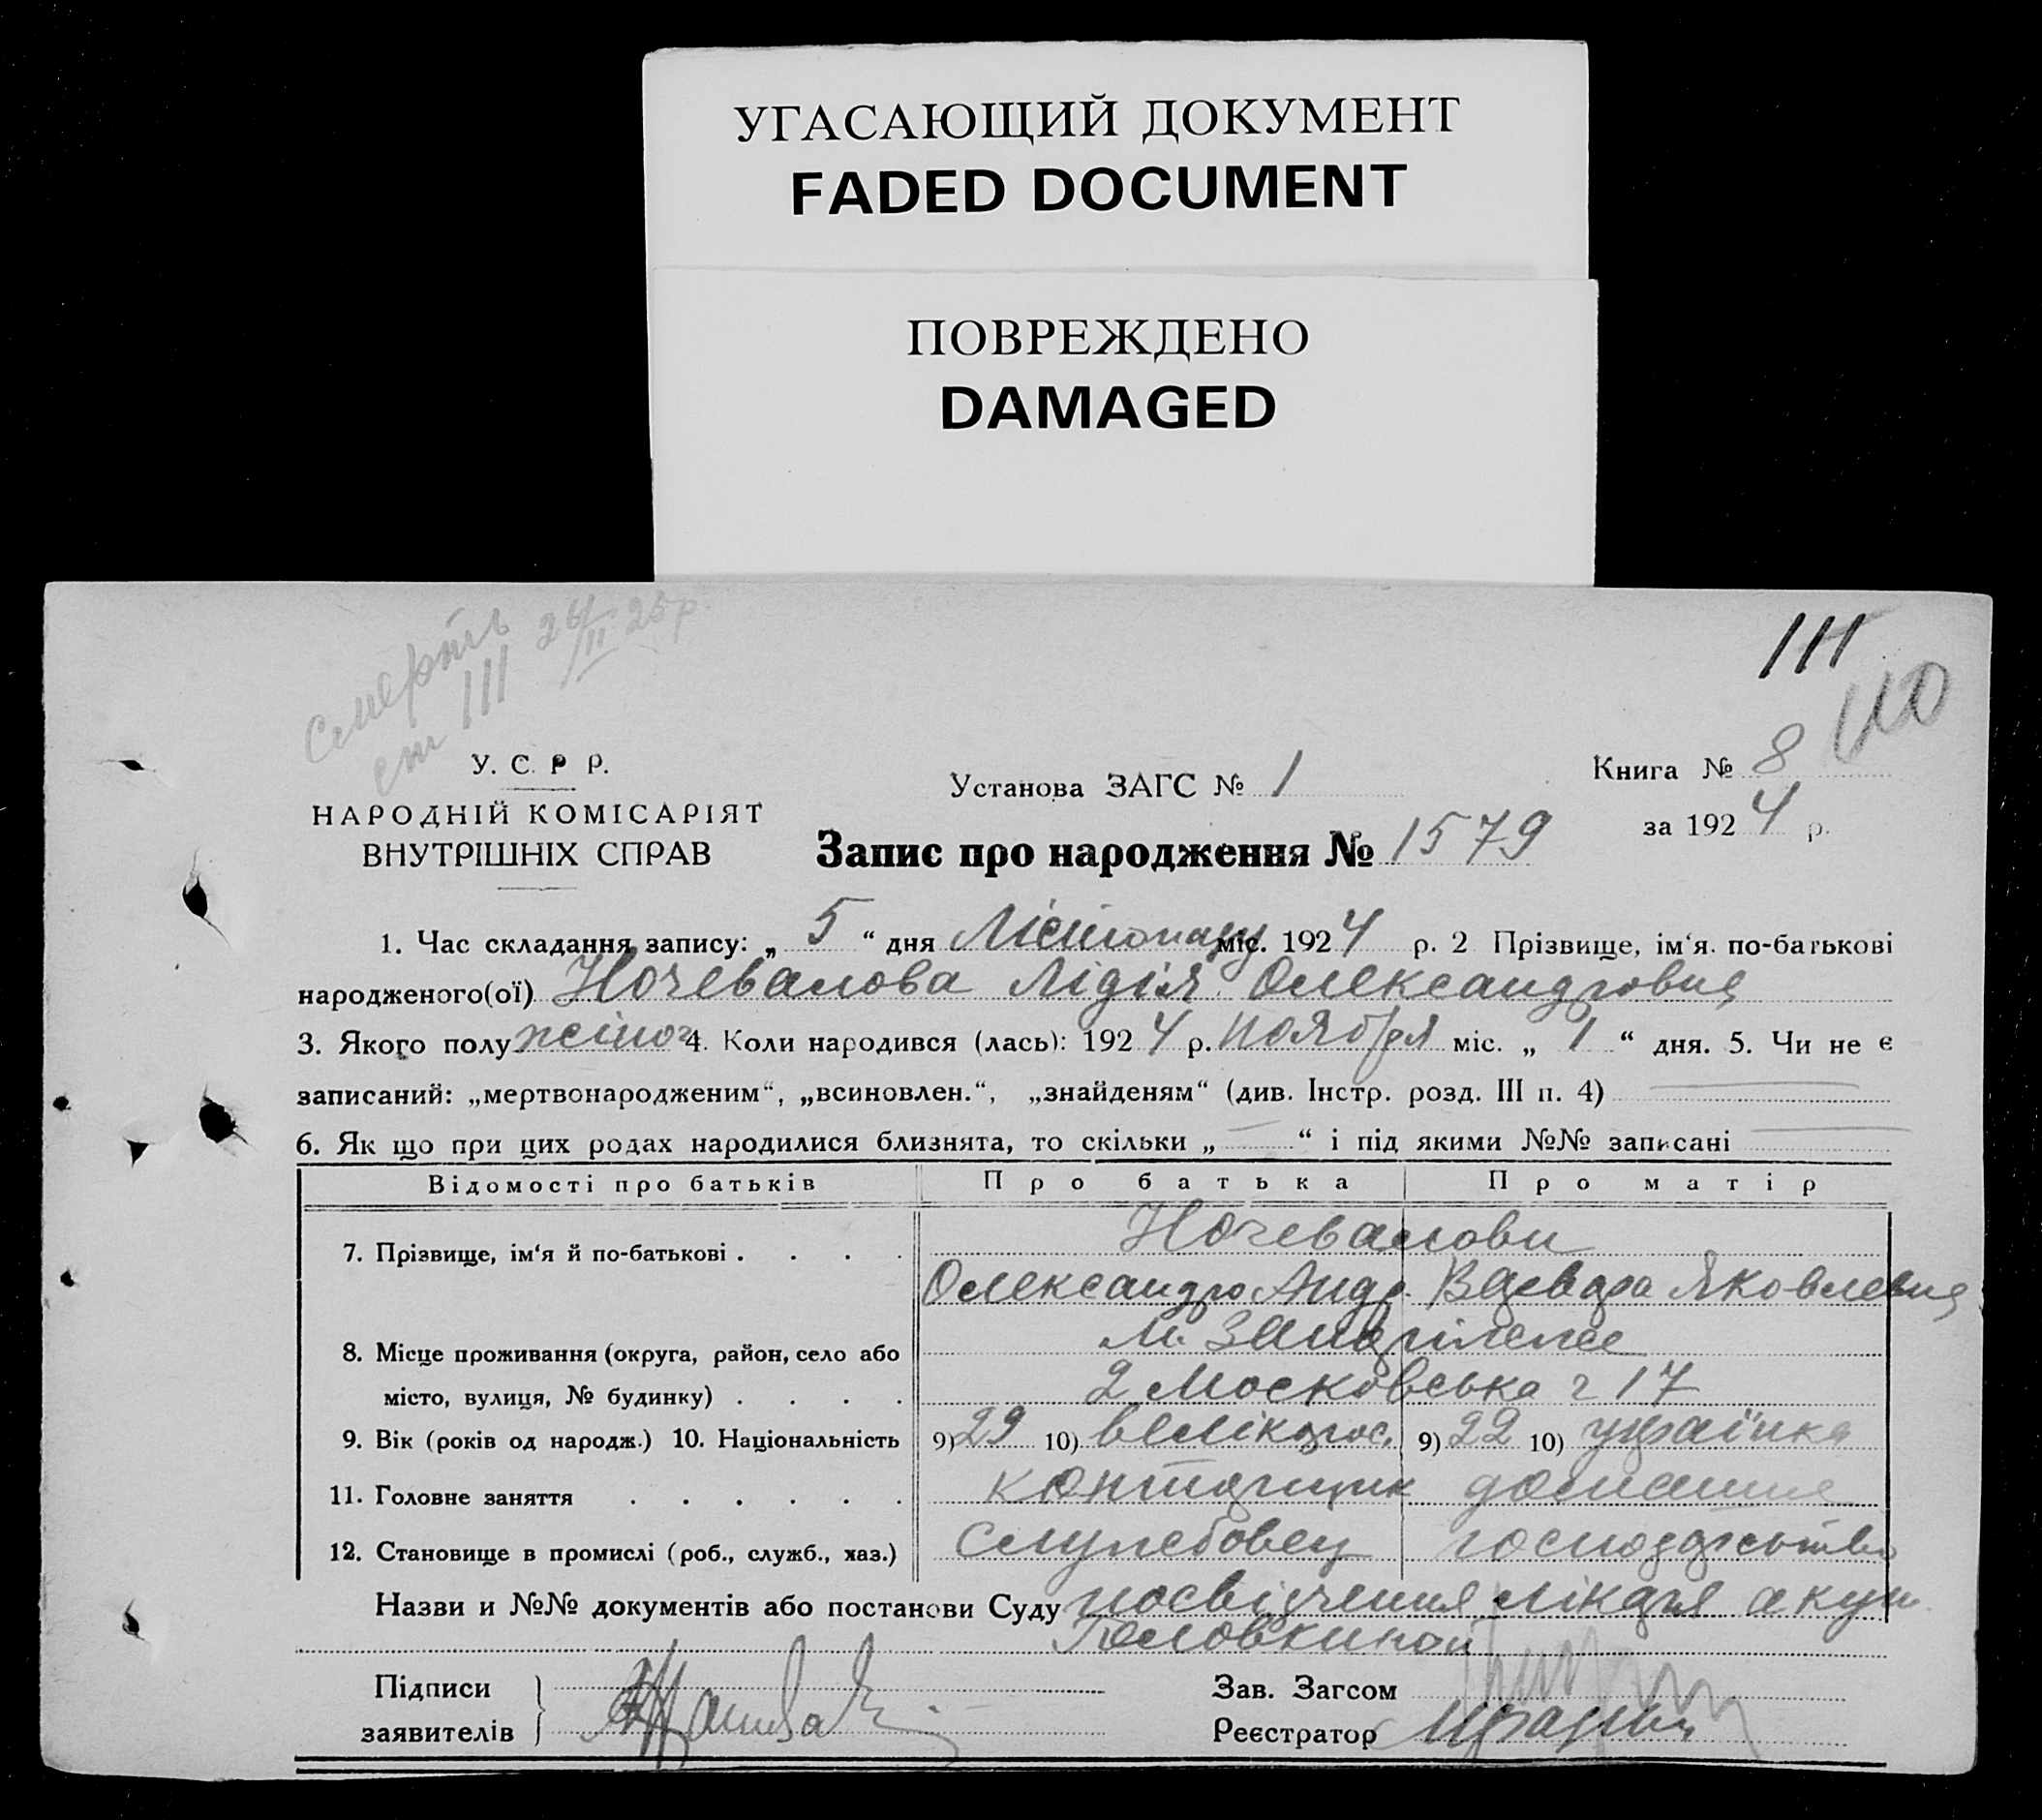 УГАСАЮЩИЙ ДОКУМЕНТ
FADED DOCUMENT
ПОВРЕЖДЕНО
DAMAGED
смерть 26/II 25 р.
ст III
111
110
У. С. Р Р.
НАРОДНІЙ КОМІСАРІЯТ
ВНУТРІШНІХ СПРАВ
Установа ЗАГС № 1
Книга № 8
за 1924 р.
Запис про народження № 1579
1. Час складання запису: „ 5 “ дня Лістопаду міс. 1924 р. 2 Прізвище, ім‘я. по-батькові
народженого(ої) Ночевалова Лідія Олександровна
3. Якого полу жіноч 4. Коли народився (лась): 1924 р. ноября міс. „ 1 “ дня. 5. Чи не є
записаний: „мертвонародженим“, „всиновлен.“, „знайденям“ (див. Інстр. розд. III п. 4)
6. Як що при цих родах народилися близнята, то скільки „ — “ і під якими №№ записані
Відомості про батьків Про батька Про матір
7. Прізвище, ім‘я й по-батькові . . . . Ночевалови
Олександр Андр. Яковлевна
8. Місце проживання (округа, район, село або м.
місто, вулиця, № будинку) . . . . 2 Московська 17
9. Вік (років од народж.) 10. Національність 9) 29 10) велікорос. 9) 22 10) українка
11. Головне заняття . . . . . . конторщик домашнє
12. Становище в промислі (роб., служб., хаз.) служебовец господарство
Назви и №№ документів або постанови Суду посвідчення лікаря акуш.
Головкиной
Підписи
заявителів
Зав. Загсом
Реєстратор